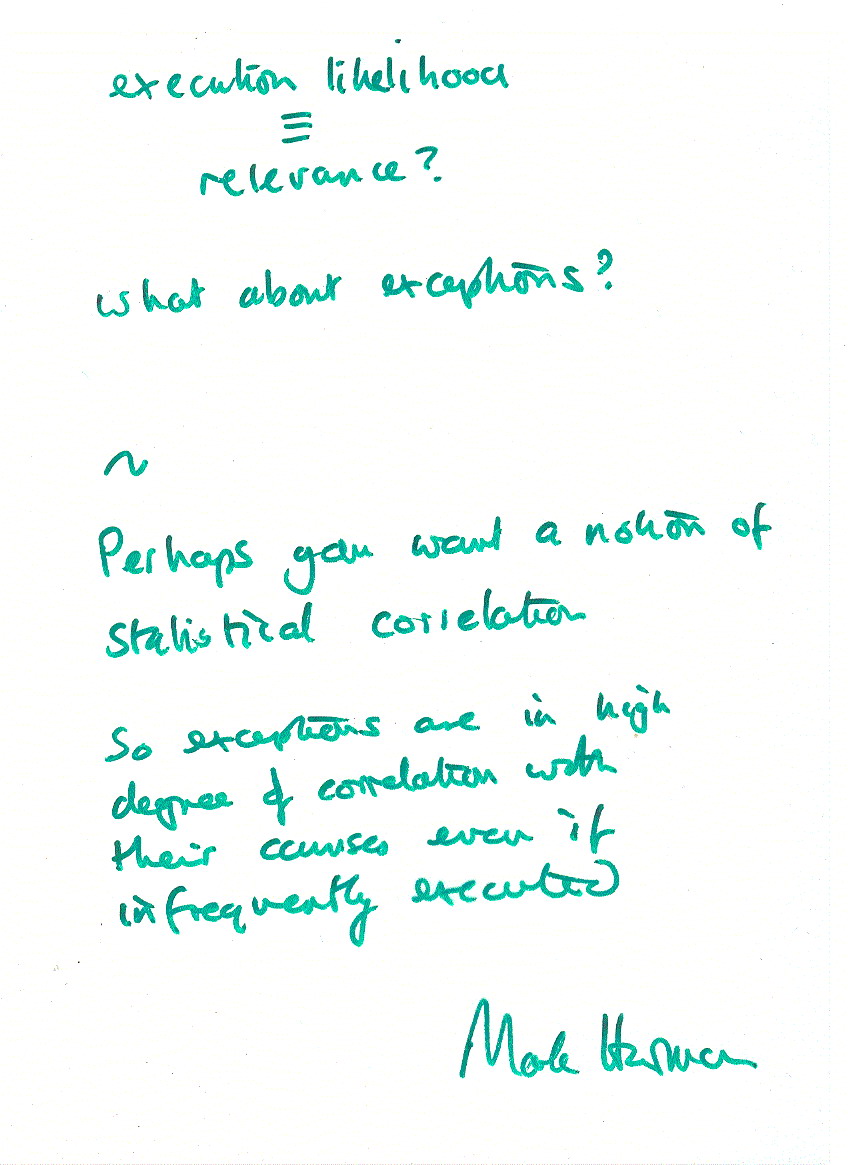 execution likelihood
≡
relevance?
what about exceptions?
~
Perhaps you want a notion of
statistical correlation
So exceptions are in high
degree of correlation with
their causes even if
infrequently executed
Mark Harman